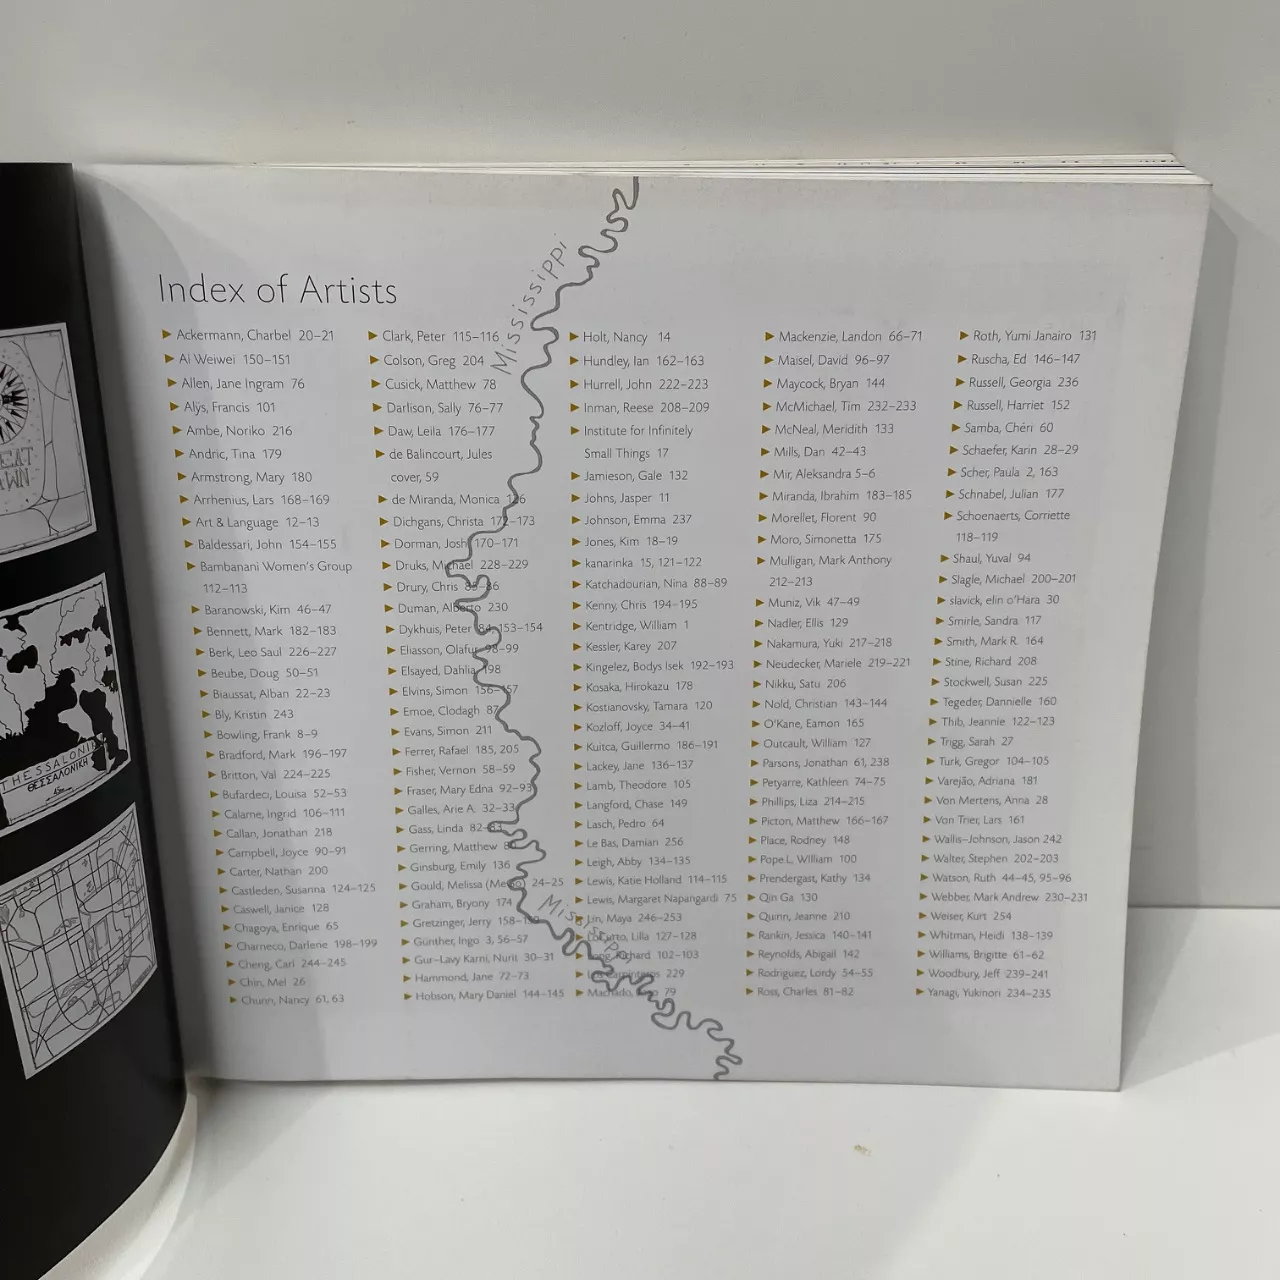 Index of Artists
Ackermann, Charbel 20–21
Ai Weiwei 150–151
Allen, Jane Ingram 76
Alÿs, Francis 101
Ambe, Noriko 216
Andric, Tina 179
Armstrong, Mary 180
Arrhenius, Lars 168–169
Art & Language 12–13
Baldessari, John 154–155
Bambanani Women's Group
112–113
Baranowski, Kim 46–47
Bennett, Mark 182–183
Berk, Leo Saul 226–227
Beube, Doug 50–51
Biaussat, Alban 22–23
Bly, Kristin 243
Bowling, Frank 8–9
Bradford, Mark 196–197
Britton, Val 224–225
Bufardeci, Louisa 52–53
Calame, Ingrid 106–111
Callan, Jonathan 218
Campbell, Joyce 90–91
Carter, Nathan 200
Castleden, Susanna 124–125
Caswell, Janice 128
Chagoya, Enrique 65
Charneco, Darlene 198–199
Cheng, Carl 244–245
Chin, Mel 26
Chunn, Nancy 61, 63
Clark, Peter 115–116
Colson, Greg 204
Cusick, Matthew 78
Darlison, Sally 76–77
Daw, Leila 176–177
de Balincourt, Jules
cover, 59
de Miranda, Monica 126
Dichgans, Christa 172–173
Dorman, Josh 170–171
Druks, Michael 228–229
Drury, Chris 85–86
Duman, Alberto 230
Dykhuis, Peter 84, 153–154
Eliasson, Olafur 98–99
Elsayed, Dahlia 198
Elvins, Simon 156–157
Emoe, Clodagh 87
Evans, Simon 211
Ferrer, Rafael 185, 205
Fisher, Vernon 58–59
Fraser, Mary Edna 92–93
Galles, Arie A. 32–33
Gass, Linda 82–83
Gerring, Matthew 80
Ginsburg, Emily 136
Gould, Melissa 24–25
Graham, Bryony 174
Gretzinger, Jerry 158–159
Günther, Ingo 3, 56–57
Gur–Lavy Karni, Nurit 30–31
Hammond, Jane 72–73
Hobson, Mary Daniel 144–145
Mississippi
Holt, Nancy 14
Hundley, Ian 162–163
Hurrell, John 222–223
Inman, Reese 208–209
Institute for Infinitely
Small Things 17
Jamieson, Gale 132
Johns, Jasper 11
Johnson, Emma 237
Jones, Kim 18–19
kanarinka 15, 121–122
Katchadourian, Nina 88–89
Kenny, Chris 194–195
Kentridge, William 1
Kessler, Karey 207
Kingelez, Bodys Isek 192–193
Kosaka, Hirokazu 178
Kostianovsky, Tamara 120
Kozloff, Joyce 34–41
Kuitca, Guillermo 186–191
Lackey, Jane 136–137
Lamb, Theodore 105
Langford, Chase 149
Lasch, Pedro 64
Le Bas, Damian 256
Leigh, Abby 134–135
Lewis, Katie Holland 114–115
Lewis, Margaret Napangardi 75
Lin, Maya 246–253
LoCurto, Lilla 127–128
Long, Richard 102–103
Los Carpinteros 229
Machado, 79
Mississippi
Mackenzie, Landon 66–71
Maisel, David 96–97
Maycock, Bryan 144
McMichael, Tim 232–233
McNeal, Meridith 133
Mills, Dan 42–43
Mir, Aleksandra 5–6
Miranda, Ibrahim 183–185
Morellet, Florent 90
Moro, Simonetta 175
Mulligan, Mark Anthony
212–213
Muniz, Vik 47–49
Nadler, Ellis 129
Nakamura, Yuki 217–218
Neudecker, Mariele 219–221
Nikku, Satu 206
Nold, Christian 143–144
O'Kane, Eamon 165
Outcault, William 127
Parsons, Jonathan 61, 238
Petyarre, Kathleen 74–75
Phillips, Liza 214–215
Picton, Matthew 166–167
Place, Rodney 148
Pope.L, William 100
Prendergast, Kathy 134
Qin Ga 130
Quinn, Jeanne 210
Rankin, Jessica 140–141
Reynolds, Abigail 142
Rodriguez, Lordy 54–55
Ross, Charles 81–82
Roth, Yumi Janairo 131
Ruscha, Ed 146–147
Russell, Georgia 236
Russell, Harriet 152
Samba, Chéri 60
Schaefer, Karin 28–29
Scher, Paula 2, 163
Schnabel, Julian 177
Schoenaerts, Corriette
118–119
Shaul, Yuval 94
Slagle, Michael 200–201
slavick, elin o'Hara 30
Smirle, Sandra 117
Smith, Mark R. 164
Stine, Richard 208
Stockwell, Susan 225
Tegeder, Dannielle 160
Thib, Jeannie 122–123
Trigg, Sarah 27
Turk, Gregor 104–105
Varejão, Adriana 181
Von Mertens, Anna 28
Von Trier, Lars 161
Wallis–Johnson, Jason 242
Walter, Stephen 202–203
Watson, Ruth 44–45, 95–96
Webber, Mark Andrew 230–231
Weiser, Kurt 254
Whitman, Heidi 138–139
Williams, Brigitte 61–62
Woodbury, Jeff 239–241
Yanagi, Yukinori 234–235
THESSALONIKI
ΘΕΣΣΑΛΟΝΙΚΗ